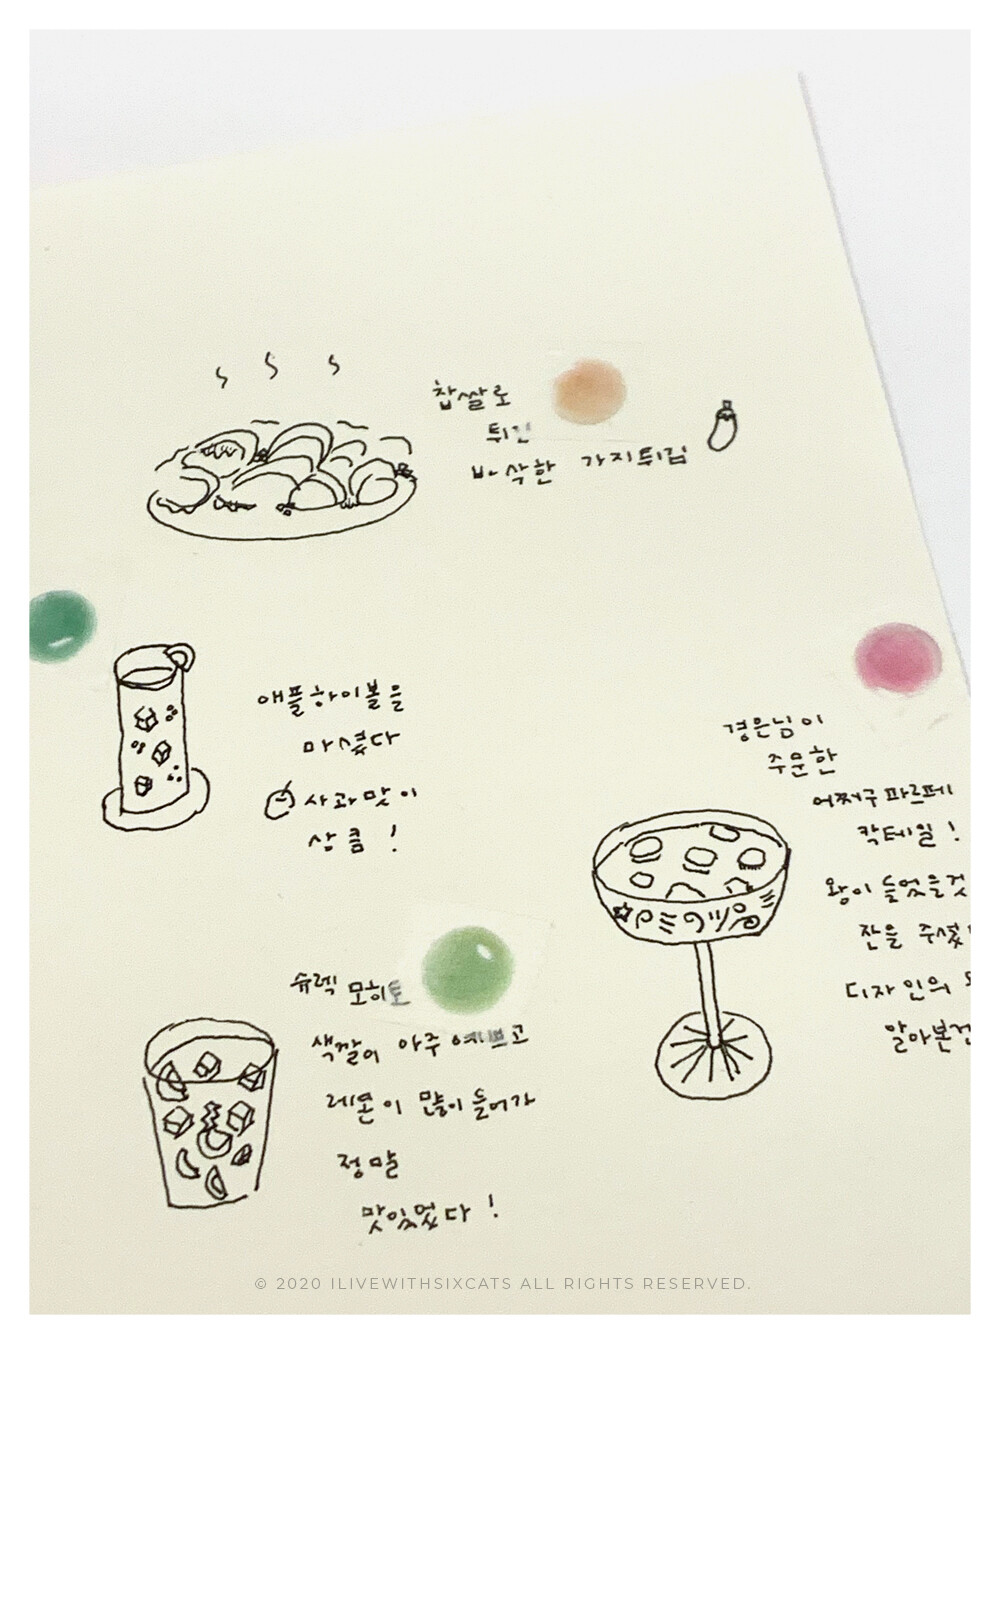 찹쌀로
튀긴
바삭한 가지튀김
애플하이볼을
마셨다
사과맛이
상큼!
경은님이
주문한
어쩌구 파르페
칵테일!
왕이 들었을것
잔을 주셨
디자인의
알아본건
슈렉 모히토
색깔이 아주 예쁘고
레몬이 많이 들어가
정말
맛있었다!
© 2020 ILIVEWITHSIXCATS ALL RIGHTS RESERVED.